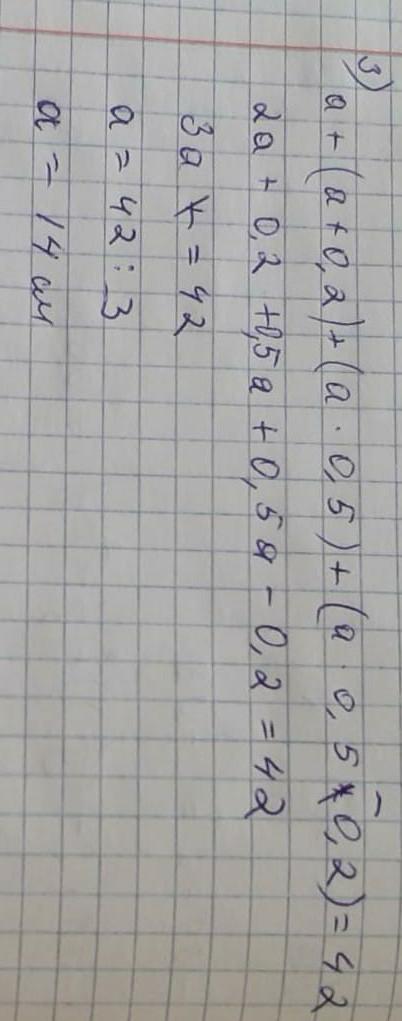 3) a + (a + 0,2) + (a · 0,5) + (a · 0,5 - 0,2) = 42
2a + 0,2 + 0,5a + 0,5a - 0,2 = 42
3a = 42
a = 42 : 3
a = 14 см